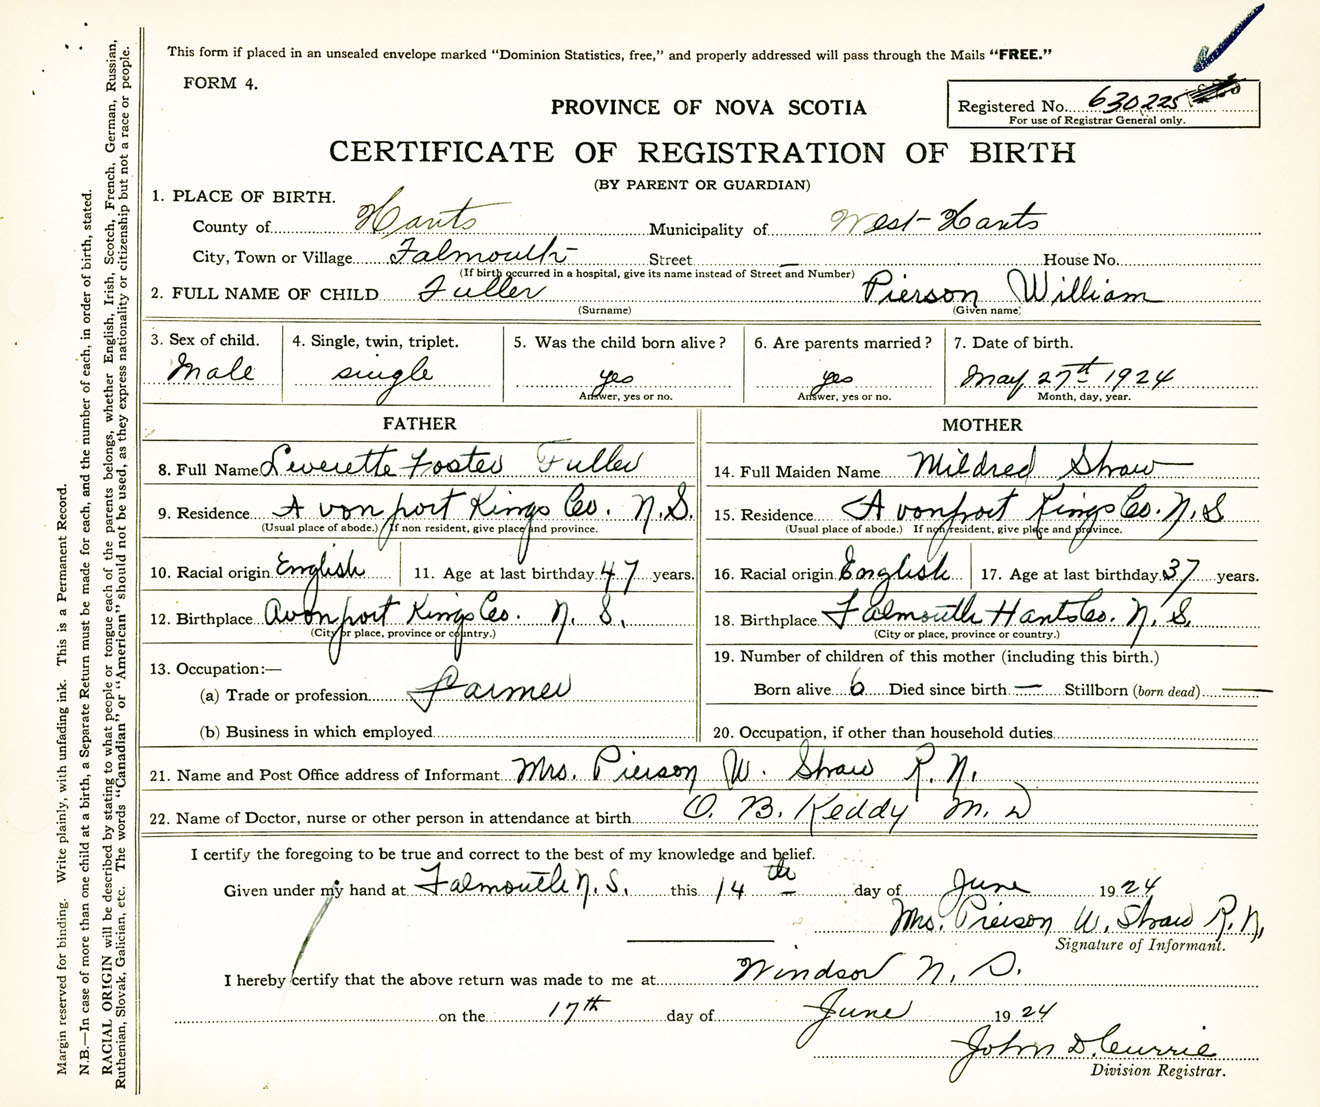 This form if placed in an unsealed envelope marked "Dominion Statistics, free," and properly addressed will pass through the Mails "FREE."
FORM 4.
PROVINCE OF NOVA SCOTIA
Registered No. 630225
For use of Registrar General only.
CERTIFICATE OF REGISTRATION OF BIRTH
(BY PARENT OR GUARDIAN)
1. PLACE OF BIRTH.
County of Hants Municipality of West Hants
City, Town or Village Falmouth Street — House No.
(If birth occurred in a hospital, give its name instead of Street and Number)
2. FULL NAME OF CHILD Fuller Pierson William
(Surname) (Given name)
3. Sex of child. 4. Single, twin, triplet. 5. Was the child born alive? 6. Are parents married? 7. Date of birth.
Male single yes yes May 27th 1924
Answer, yes or no. Answer, yes or no. Month, day, year.
FATHER MOTHER
8. Full Name Leverette Foster Fuller 14. Full Maiden Name Mildred Shaw
9. Residence Avonport Kings Co. N.S. 15. Residence Avonport Kings Co. N.S
(Usual place of abode.) If non resident, give place and province. (Usual place of abode.) If non resident, give place and province.
10. Racial origin English 11. Age at last birthday 47 years. 16. Racial origin English 17. Age at last birthday 37 years.
12. Birthplace Avonport Kings Co. N. S. 18. Birthplace Falmouth Hants Co. N. S.
(City or place, province or country.) (City or place, province or country.)
13. Occupation:— 19. Number of children of this mother (including this birth.)
(a) Trade or profession Farmer Born alive 6 Died since birth — Stillborn (born dead) —
(b) Business in which employed 20. Occupation, if other than household duties
21. Name and Post Office address of Informant Mrs. Pierson W. Shaw R. N.
22. Name of Doctor, nurse or other person in attendance at birth O. B. Keddy M. D
I certify the foregoing to be true and correct to the best of my knowledge and belief.
Given under my hand at Falmouth N. S. this 14th day of June 1924
Mrs. Pierson W. Shaw R. N.
Signature of Informant.
I hereby certify that the above return was made to me at Windsor N. S.
on the 17th day of June 1924
John D. Currie
Division Registrar.
Margin reserved for binding. Write plainly, with unfading ink. This is a Permanent Record.
N.B.—In case of more than one child at a birth, a Separate Return must be made for each, and the number of each, in order of birth, stated.
RACIAL ORIGIN will be described by stating to what people or tongue each of the parents belongs, whether English, Irish, Scotch, French, German, Russian,
Ruthenian, Slovak, Galician, etc. The words "Canadian" or "American" should not be used, as they express nationality or citizenship but not a race or people.